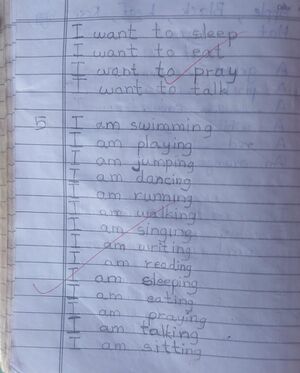 I want to sleep
I want to eat
I want to pray
I want to talk
5 I am swimming
I am playing
I am jumping
I am dancing
I am running
I am walking
I am singing
I am writing
I am reading
I am sleeping
I am eating
I am praying
I am talking
I am sitting